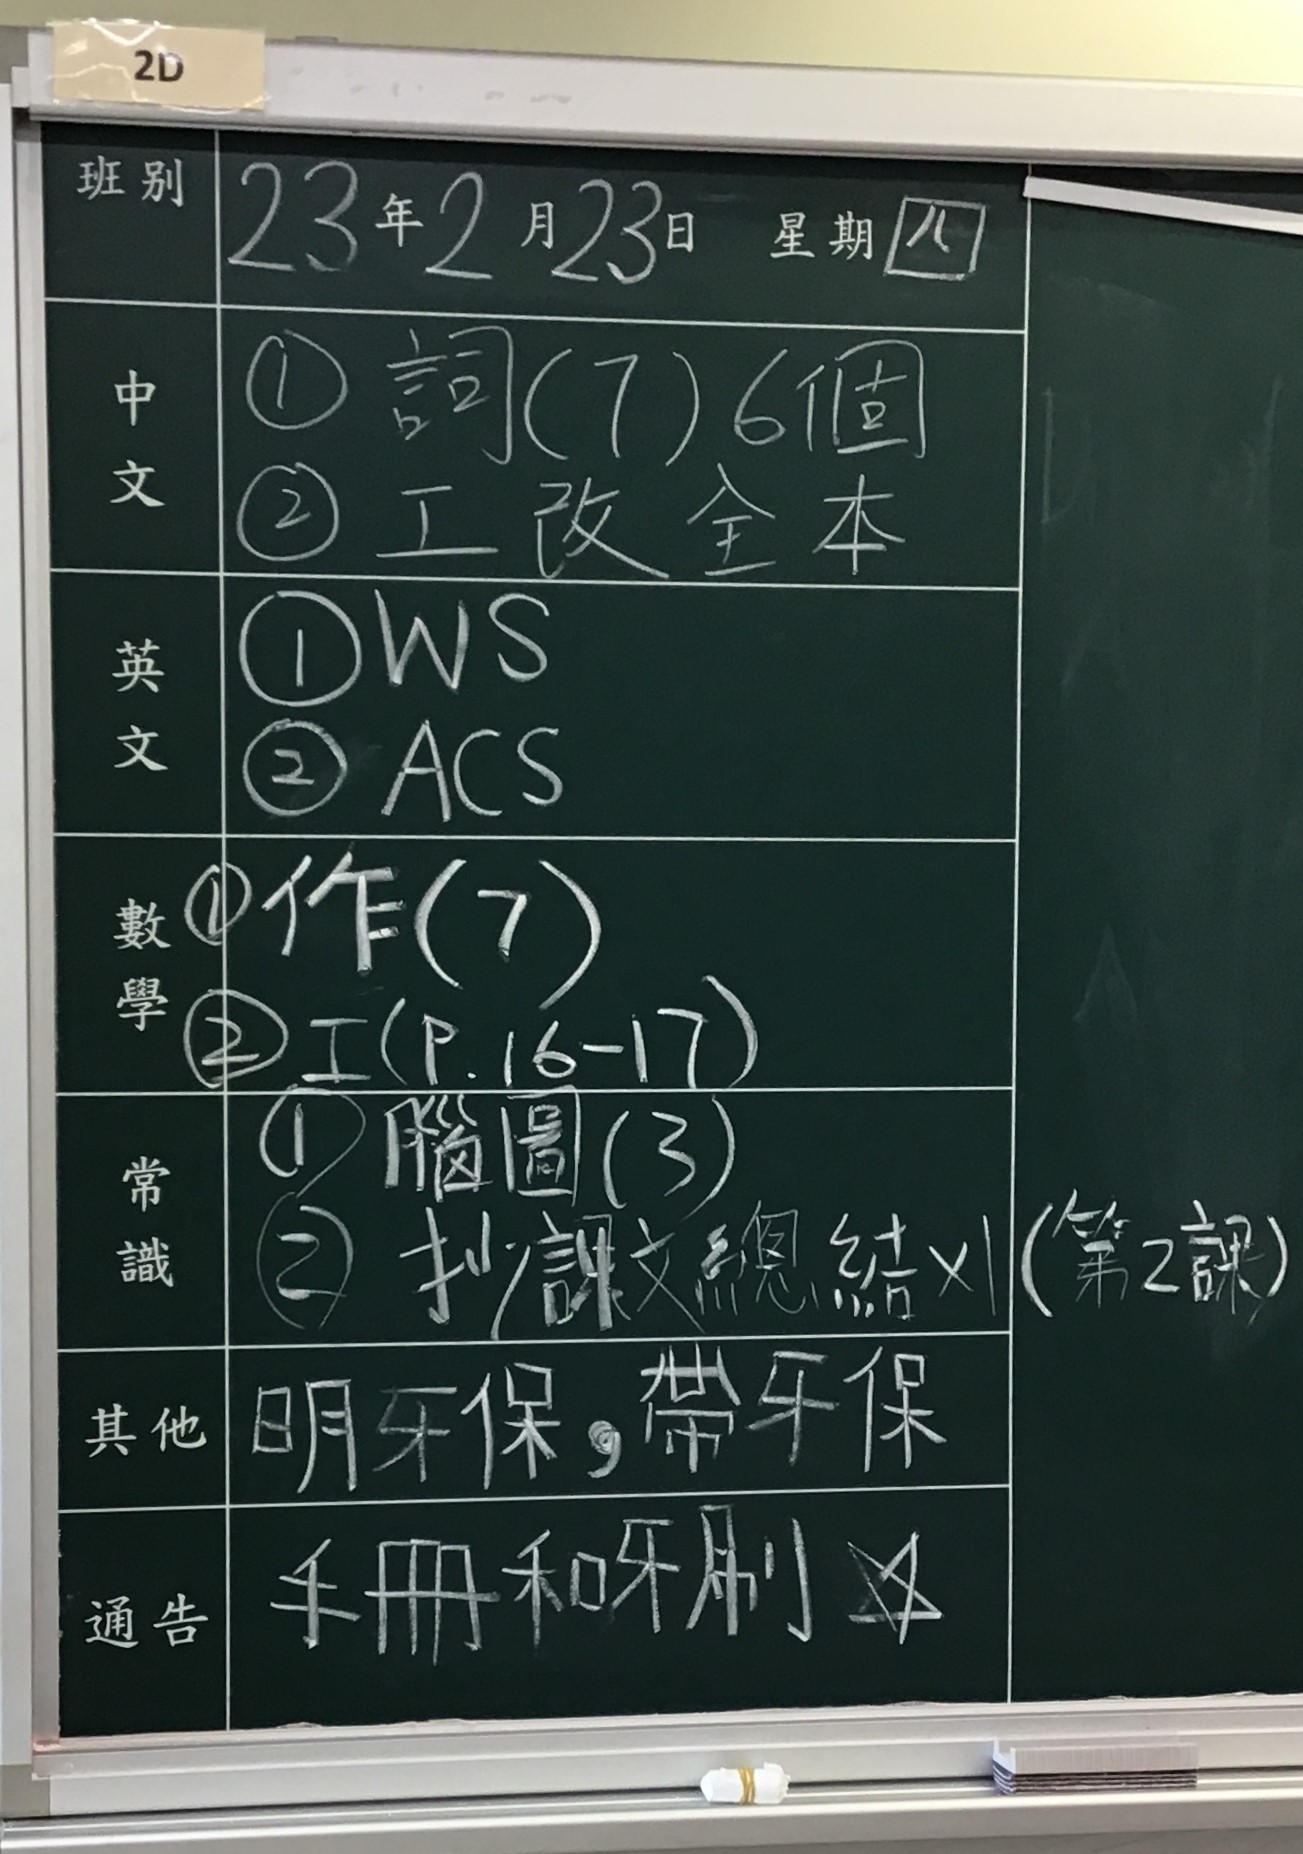 2D
班別 23年2月23日 星期四
中文 ① 詞(7)6個
② 工改全本
英文 ① WS
② ACS
數學 ① 作(7)
② 工(P.16-17)
常識 ① 腦圖(3)
② 抄課文總結x1(第2課)
其他 明牙保,帶牙保
通告 手冊和牙刷